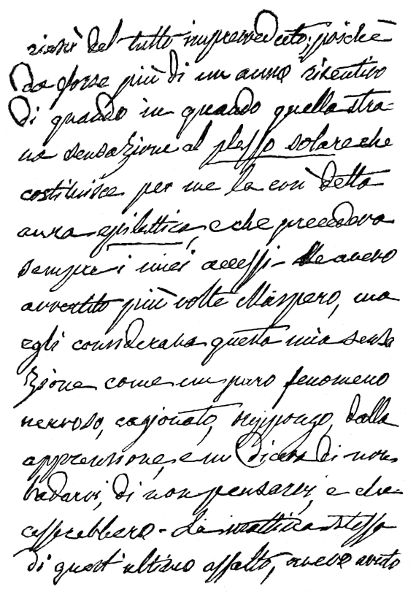 riuscì del tutto impreveduto; poichè
da forse più di un anno risentivo
di quando in quando quella stra-
na sensazione al plesso solare che
costituisce per me la così detta
aura epilettica, e che precedeva
sempre i miei accessi. Ne avevo
avvertito più volte Maspero, ma
egli considerava questa mia sensa
zione come un puro fenomeno
nervoso, cagionato, suppongo, dalla
apprensione, e mi diceva di non
badarvi, di non pensarvi, e che
cesserebbero. La mattina stessa
di quest'ultimo assalto, avevo avuto